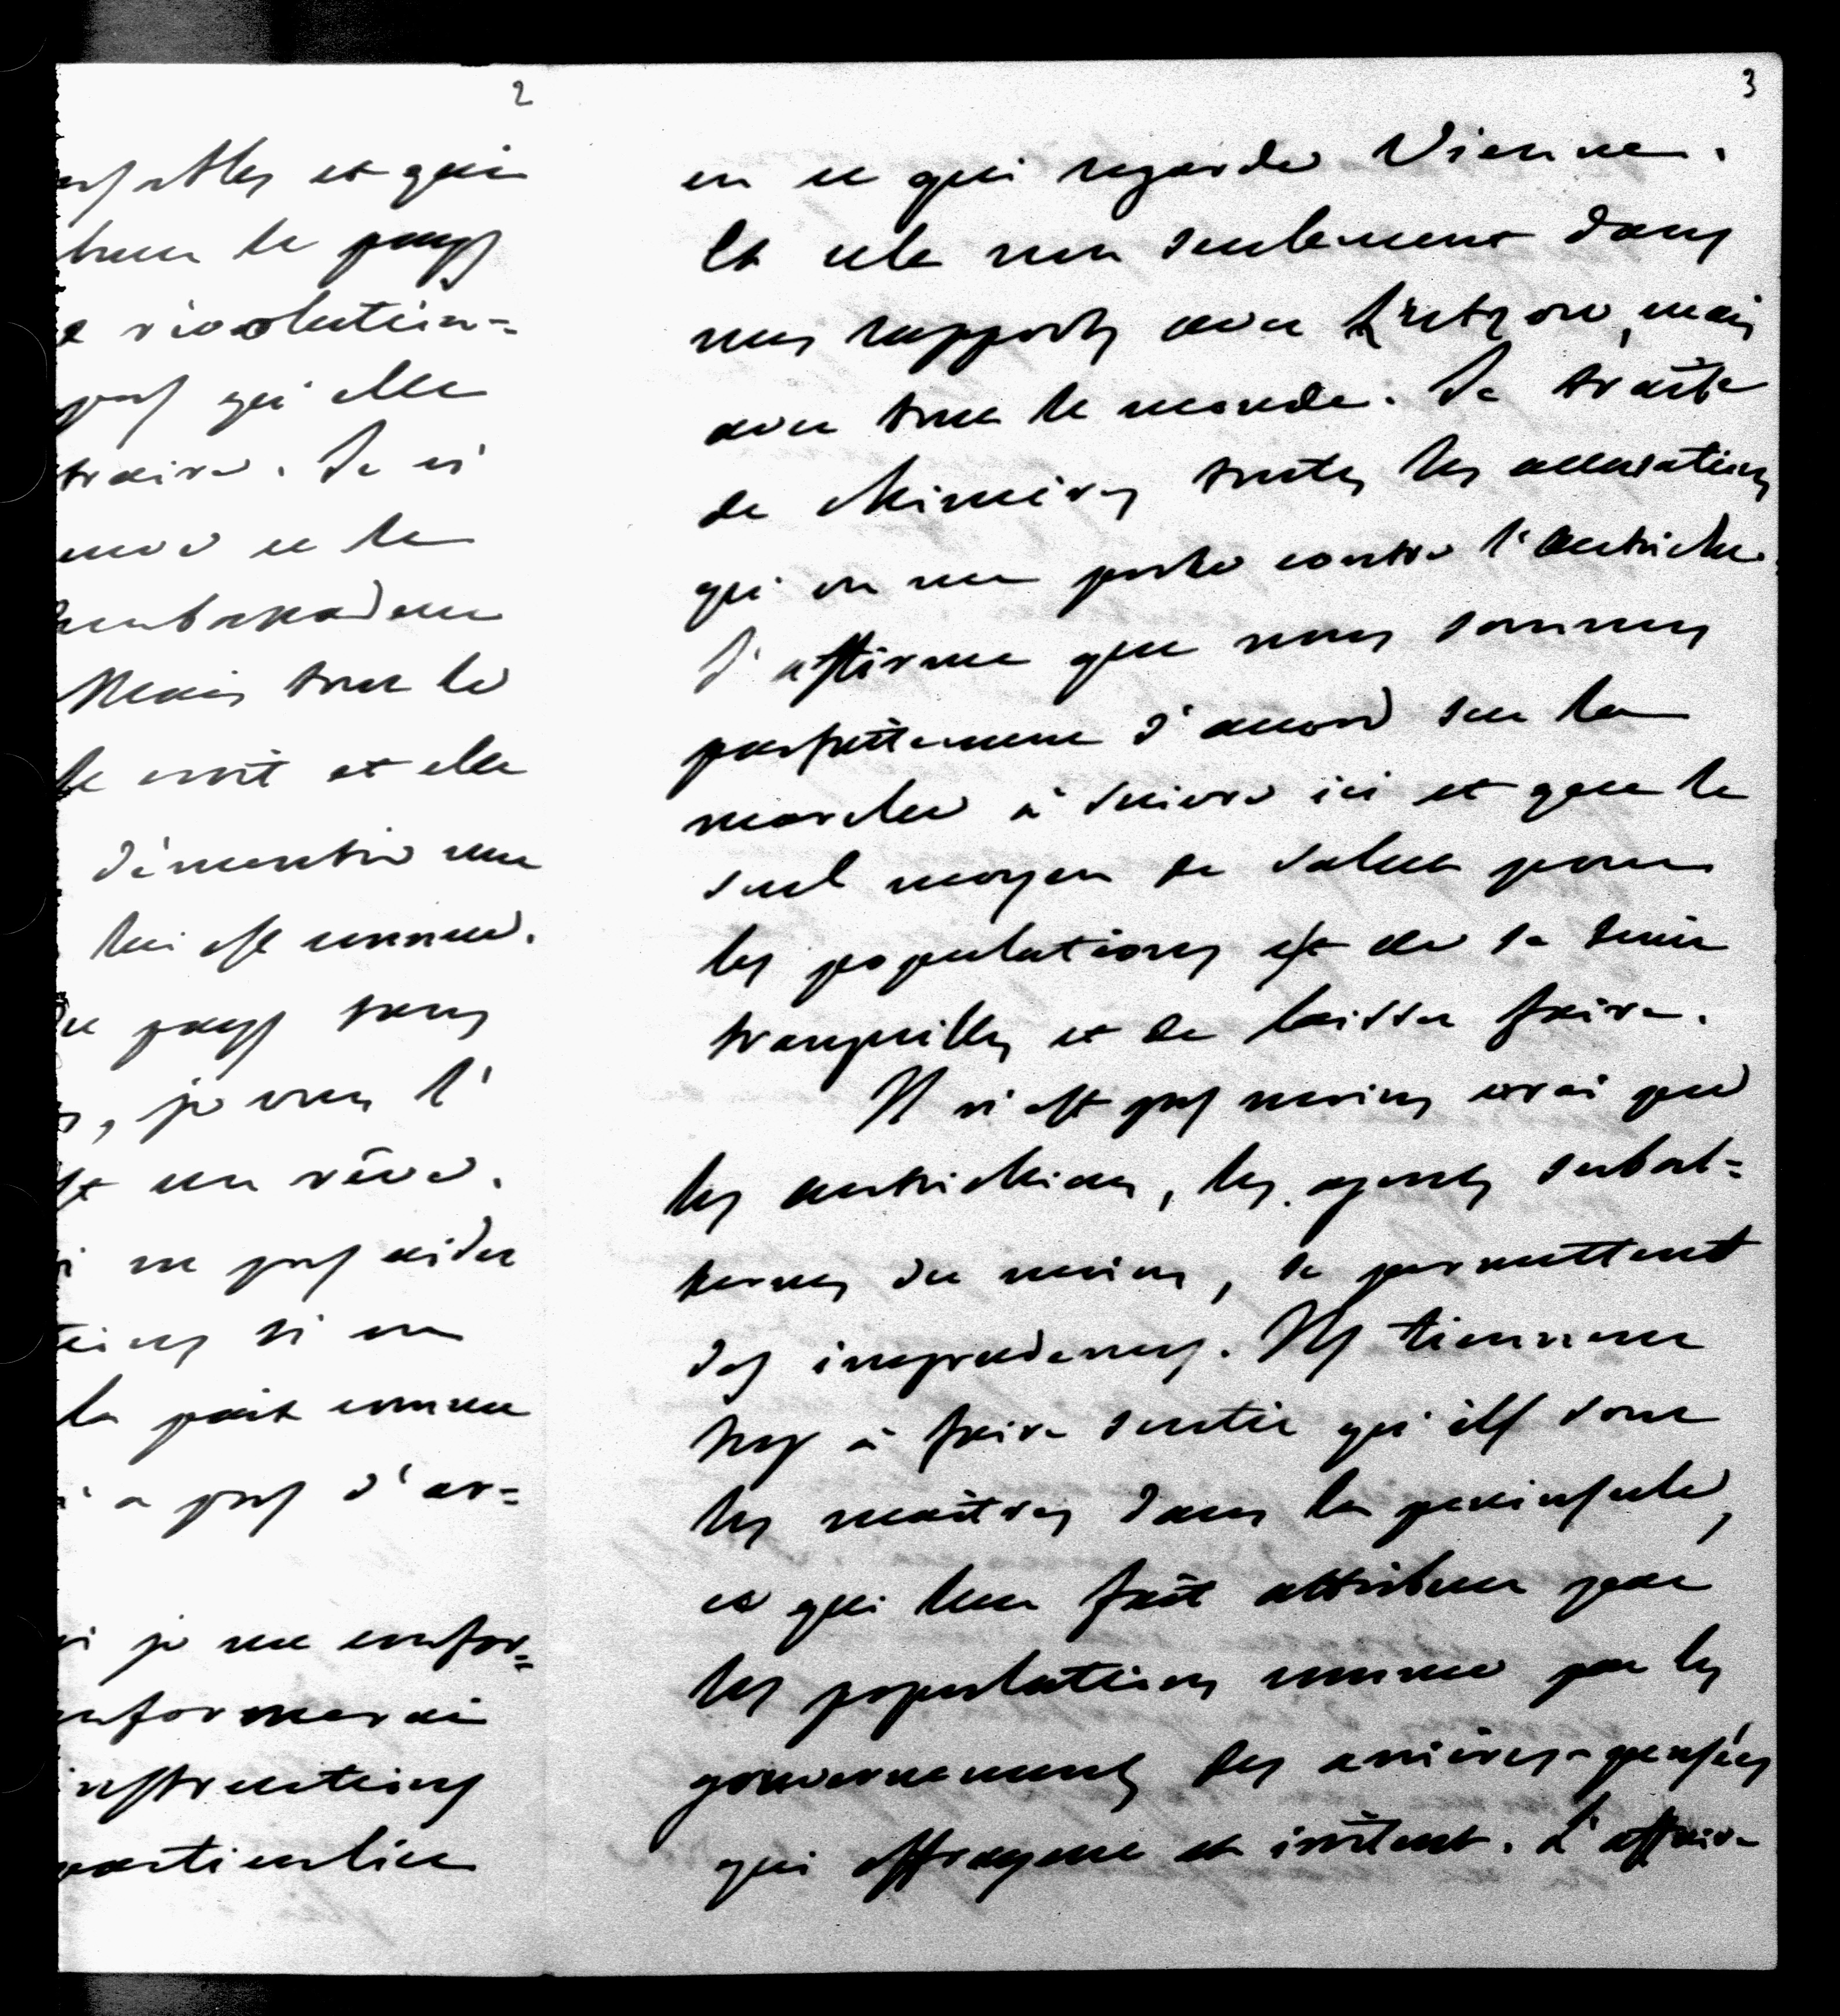 2
et qui
le pays
révolution=
pas qu'elle
traire. Je n'
ce le
ambassadeur
Mais tout le
le croit et elle
démentir une
lui est connue.
pays sans
, je vous l'
un rêve.
ne pas aider
si on
la paix comme
a pas d'ar=
je me confor=
informerai
instructions
particulier
3
en ce qui regarde Vienne.
Et cela non seulement dans
mes rapports avec Lützow, mais
avec tout le monde. Je traite
de chimères toutes les accusations
qu'on me porte contre l'Autriche.
J'affirme que nous sommes
parfaitement d'accord sur la
marche à suivre ici et que le
seul moyen de salut pour
les populations est de se tenir
tranquilles et de laisser faire.
Il n'est pas moins vrai que
les autrichiens, les agents subal=
ternes du moins, se permettent
des imprudences. Ils tiennent
trop à faire sentir qu'ils sont
les maîtres dans la péninsule,
ce qui leur fait attribuer par
les populations comme par les
gouvernements des arrières-pensées
qui effrayent et irritent. L'affaire